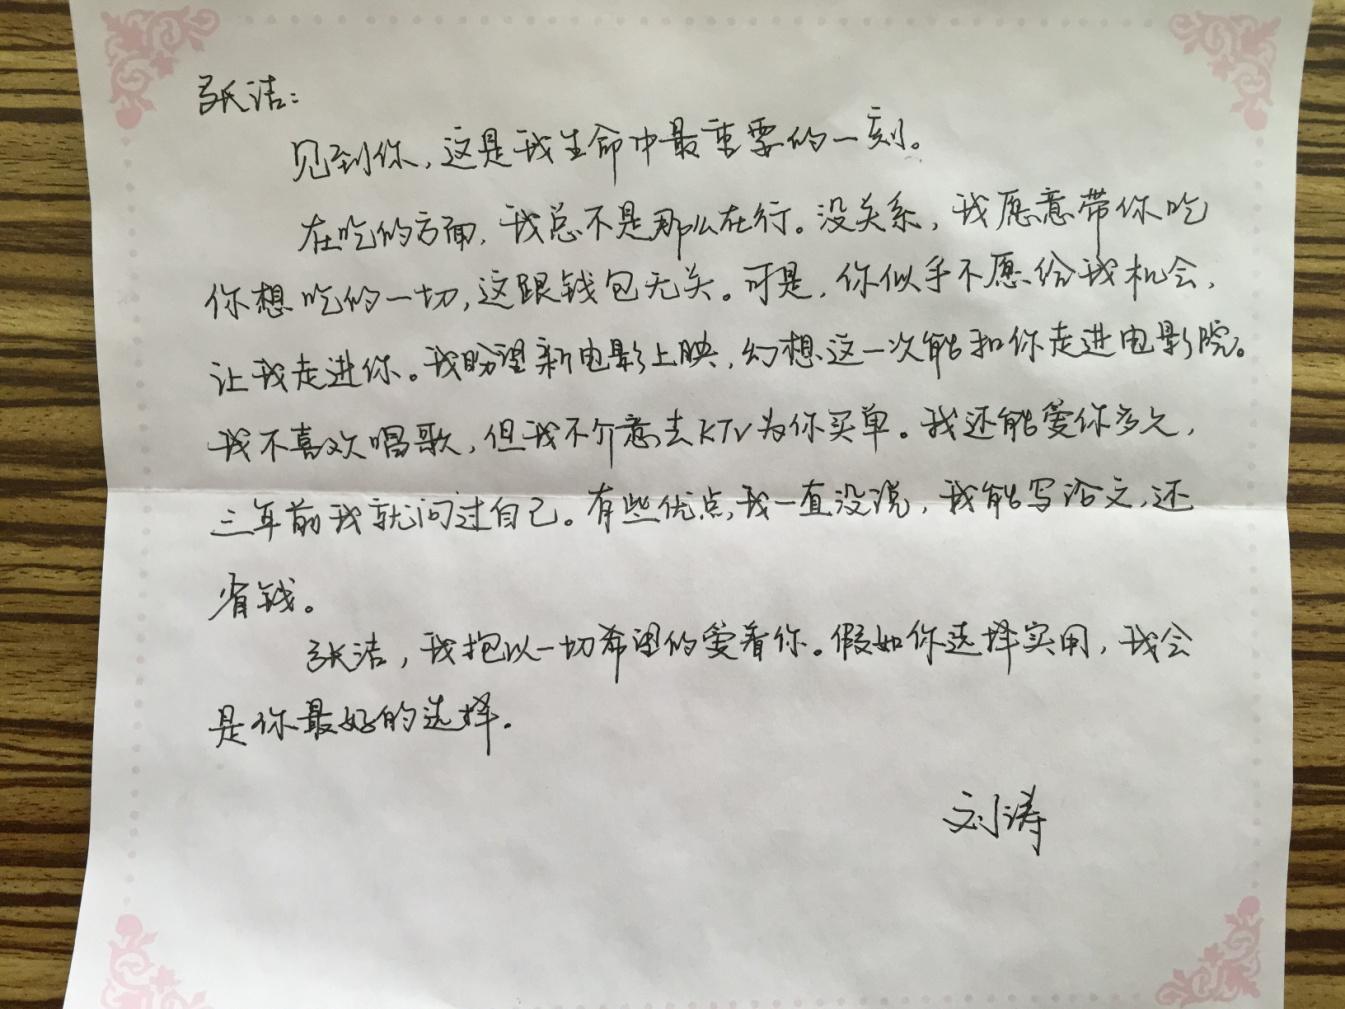 张洁：
见到你，这是我生命中最重要的一刻。
在吃的方面，我总不是那么在行。没关系，我愿意带你吃
你想吃的一切，这跟钱包无关。可是，你似乎不愿给我机会，
让我走进你。我盼望新电影上映，幻想这一次能和你走进电影院。
我不喜欢唱歌，但我不介意去KTV为你买单。我还能爱你多久，
三年前我就问过自己。有些优点，我一直没说，我能写论文，还
省钱。
张洁，我抱以一切希望的爱着你。假如你选择实用，我会
是你最好的选择。
刘涛